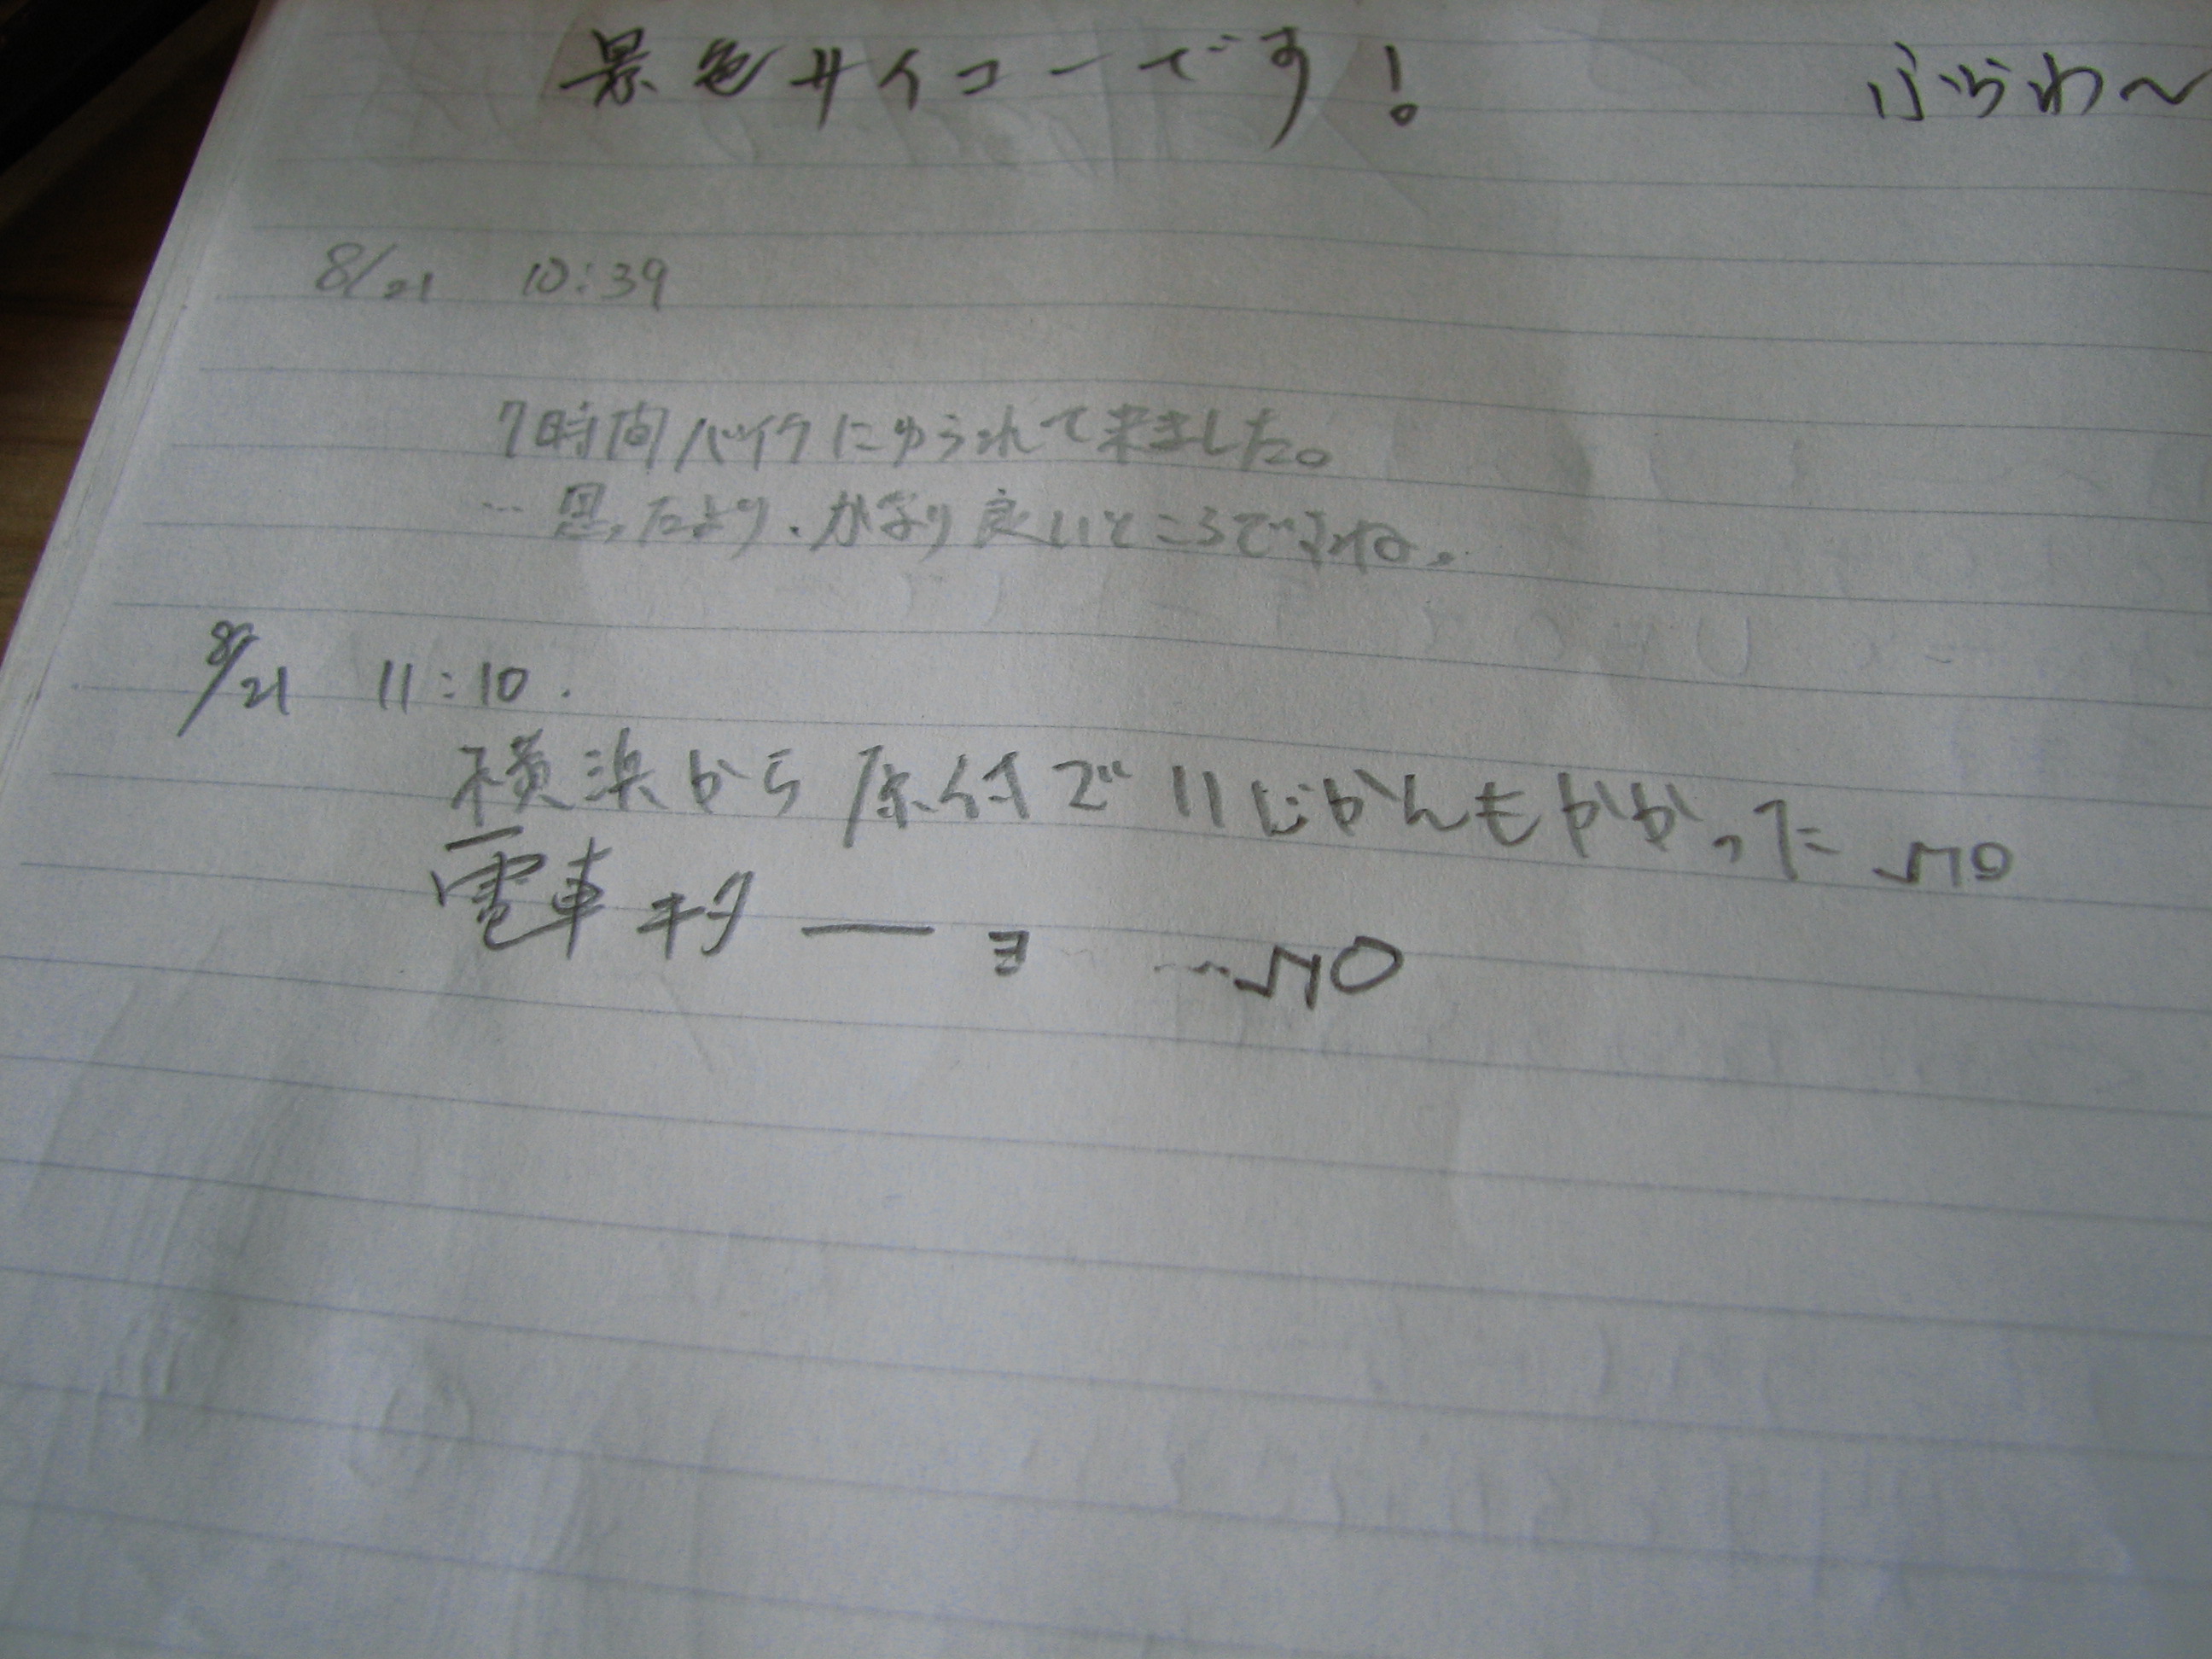 景色サイコーです! ぶらわ〜
8/21 10:39
7時間バイクにゆられて来ました。
… 思ったより、かなり良いところですね。
8/21 11:10.
横浜から原付で11じかんもかかった
電車キター ヨ